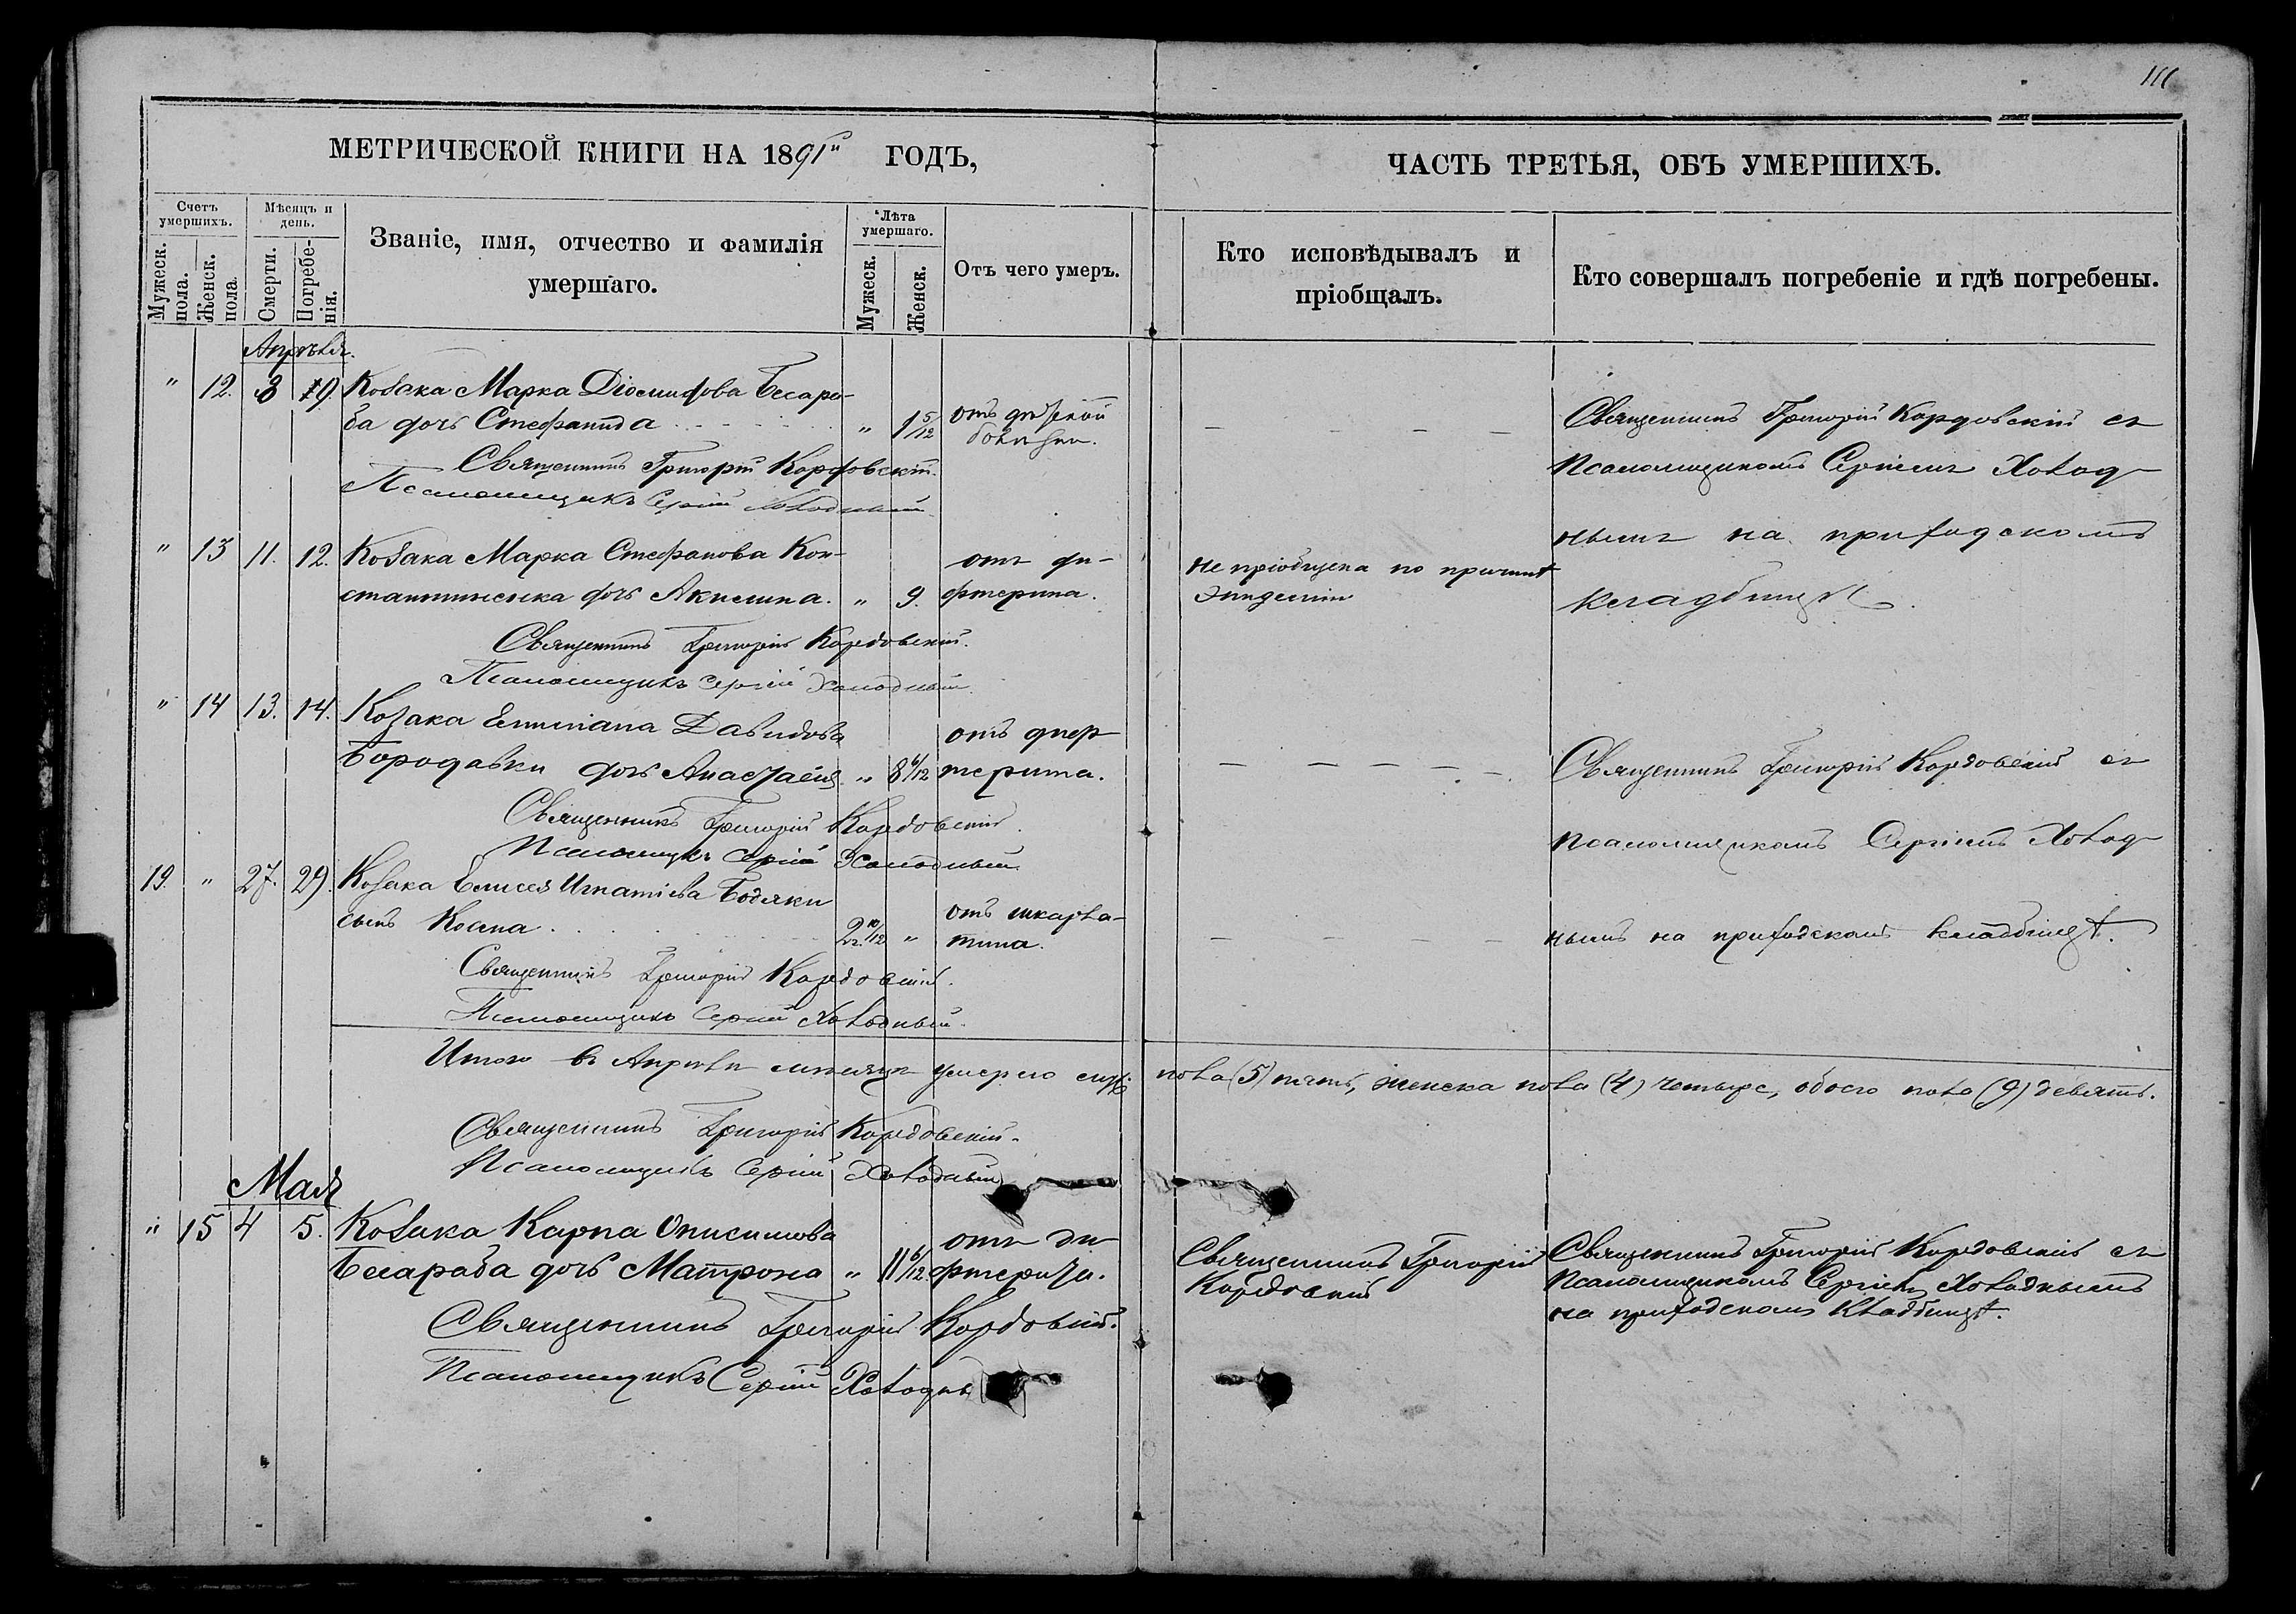 111
МЕТРИЧЕСКОЙ КНИГИ НА 1891й ГОДЪ,
ЧАСТЬ ТРЕТЬЯ, ОБЪ УМЕРШИХЪ.
Счетъ умершихъ.
Мужеск. пола.
Женск. пола.
Мѣсяцъ и день.
Смерти.
Погребенія.
Званіе, имя, отчество и фамилія умершаго.
Лѣта умершаго.
Мужеск.
Женск.
Отъ чего умеръ.
Кто исповѣдывалъ и пріобщалъ.
Кто совершалъ погребеніе и гдѣ погребены.
Апрѣля.
" 12. 8 9. Козака Марка Діомидова Бесара-
ба дочь Стефанида " 1 5/12 отъ дѣтской
болѣзни.
Священникъ Григорій Кордовскій.
Псаломщикъ Сергій Холодный
Священникъ Григорій Кордовскій съ
Псаломщикомъ Сергіемъ Холод-
нымъ на приходскомъ
кладбищѣ.
" 13 11. 12. Козака Марка Стефанова Кон-
стантиненка дочь Акилина. " 9. отъ ди-
фтерита.
не пріобщена по причинѣ
эпидеміи
Священникъ Григорій Кордовскій.
Псаломщикъ Сергій Холодный.
" 14 13. 14. Козака Емиліана Давидова
Бородавки дочь Анастасія " 8 6/12 отъ диф-
терита.
Священникъ Григорій Кордовскій.
Псаломщикъ Сергій Холодный.
Священникъ Григорій Кордовскій съ
Псаломщикомъ Сергіемъ Холод-
нымъ на приходскомъ кладбищѣ.
19. " 27. 29. Козака Елисея Игнатіева Бодяки
сынъ Косма 2г. 10/12 " отъ шкарла-
тина.
Священникъ Григорій Кордовскій.
Псаломщикъ Сергій Холодный.
Итого въ Апрѣлѣ мѣсяцѣ умерло муж. пола (5) пять, женска пола (4) четыре, обоего пола (9) девять.
Священникъ Григорій Кордовскій.
Псаломщикъ Сергій Холодный
Мая
" 15 4 5. Козака Карпа Онисимова
Бесараба дочь Матрона " 11 6/12 отъ ди-
фтерита.
Священникъ Григорій
Кордовскій
Священникъ Григорій Кордовскій съ
Псаломщикомъ Сергіемъ Холоднымъ
на приходскомъ кладбищѣ.
Священникъ Григорій Кордовскій.
Псаломщикъ Сергій Холодны